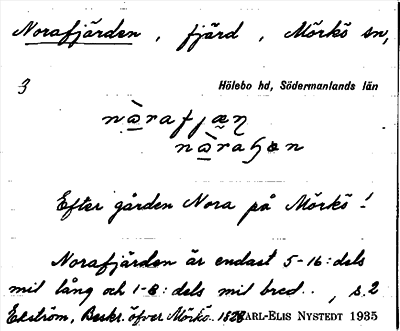 Norafjärden, fjärd, Mörkö sn,
3
Hölebo hd, Södermanlands län
Efter gården Nora på Mörkö!
Norafjärden är endast 5-16:dels
mil lång och 1-8:dels mil bred.., s.2
Ekström, Beskr. öfver Mörkö.. 1828 ARL-ELIS NYSTEDT 1935